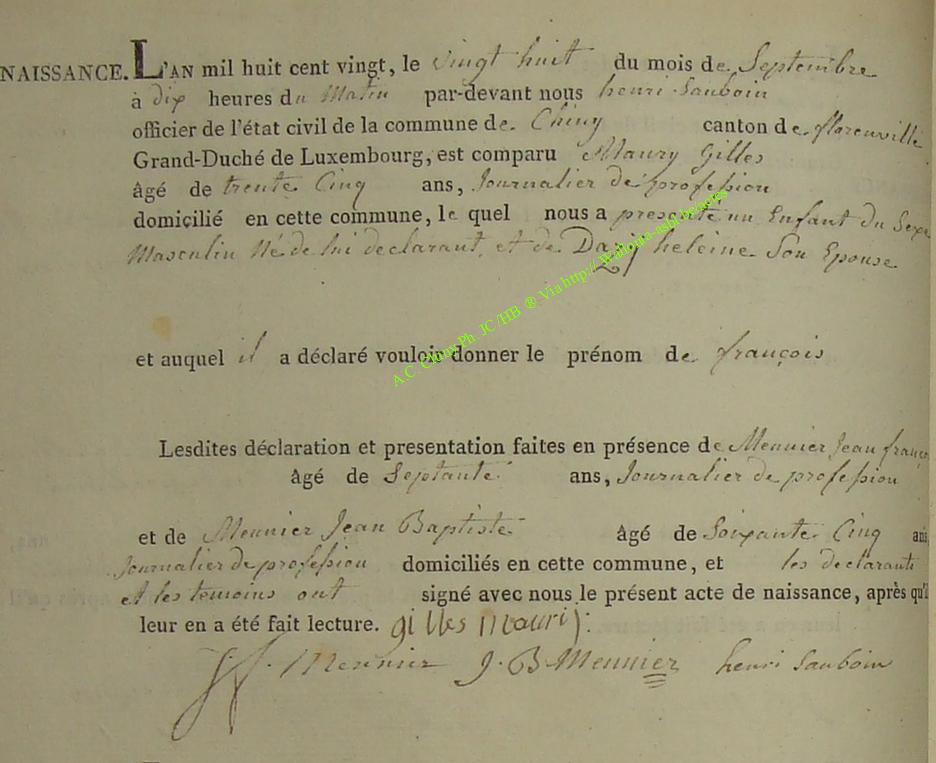 NAISSANCE. L'AN mil huit cent vingt, le vingt huit du mois de Septembre
à dix heures du Matin par-devant nous henri Sauboin
officier de l'état civil de la commune de Chiny canton de florenville
Grand-Duché de Luxembourg, est comparu Maury Gilles
âgé de trente Cinq ans, Journalier de profession
domicilié en cette commune, le quel nous a presenté un Enfant du Sexe
Masculin Né de lui declarant, et de heleine Son Epouse
et auquel il a déclaré vouloir donner le prénom de françois
Lesdites déclaration et presentation faites en présence de Meunier Jean franço
âgé de Septante ans, Journalier de profession
et de Meunier Jean Baptiste âgé de Soixante Cinq ans,
Journalier de profession domiciliés en cette commune, et les declarants
et les temoins ont signé avec nous le présent acte de naissance, après qu'il
leur en a été fait lecture. gilles Maurij
Meunier J. B Meunier henri Sauboin
A.C. Chiny Ph. JC/HB ® Via http://